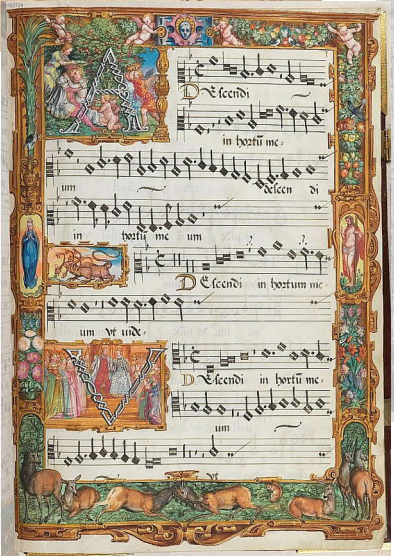 DEscendi
in hortū me-
um descen di
in hortū me um
DEscendi in hortum me
um vt vide-
DEscendi in hortū me-
um